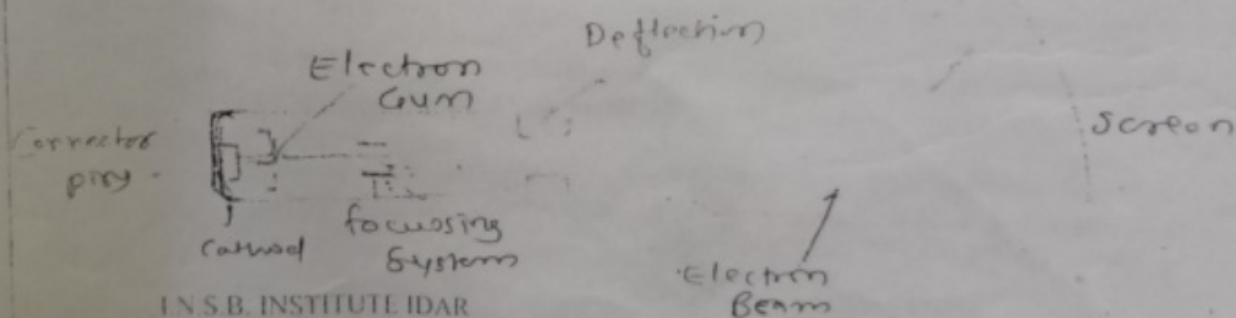 Deflection
Electron
Gum
Connector
piny.
Screen
Cathod
focussing
System
Electron
Beam
I.N.S.B. INSTITUTE IDAR